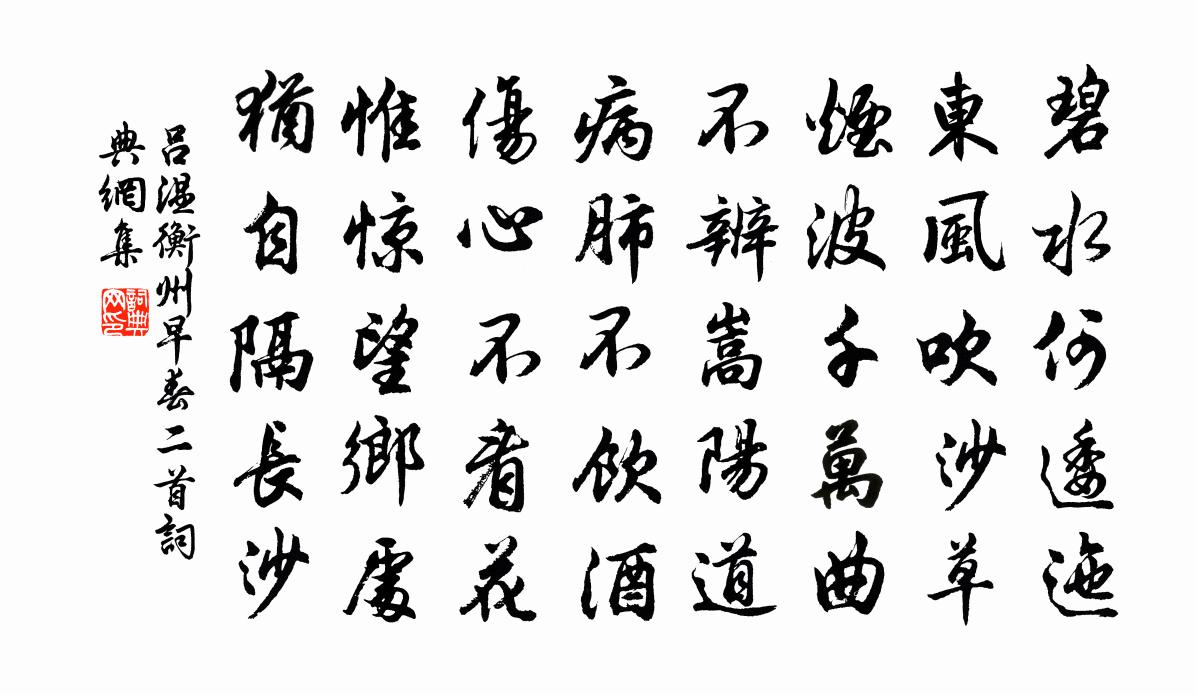 碧水何逶迤
東風吹沙草
煙波千萬曲
不辨嵩陽道
病肺不飲酒
傷心不看花
惟惊望鄉處
猶自隔長沙
吕温衡州早春二首詞
典網集
詞典網印